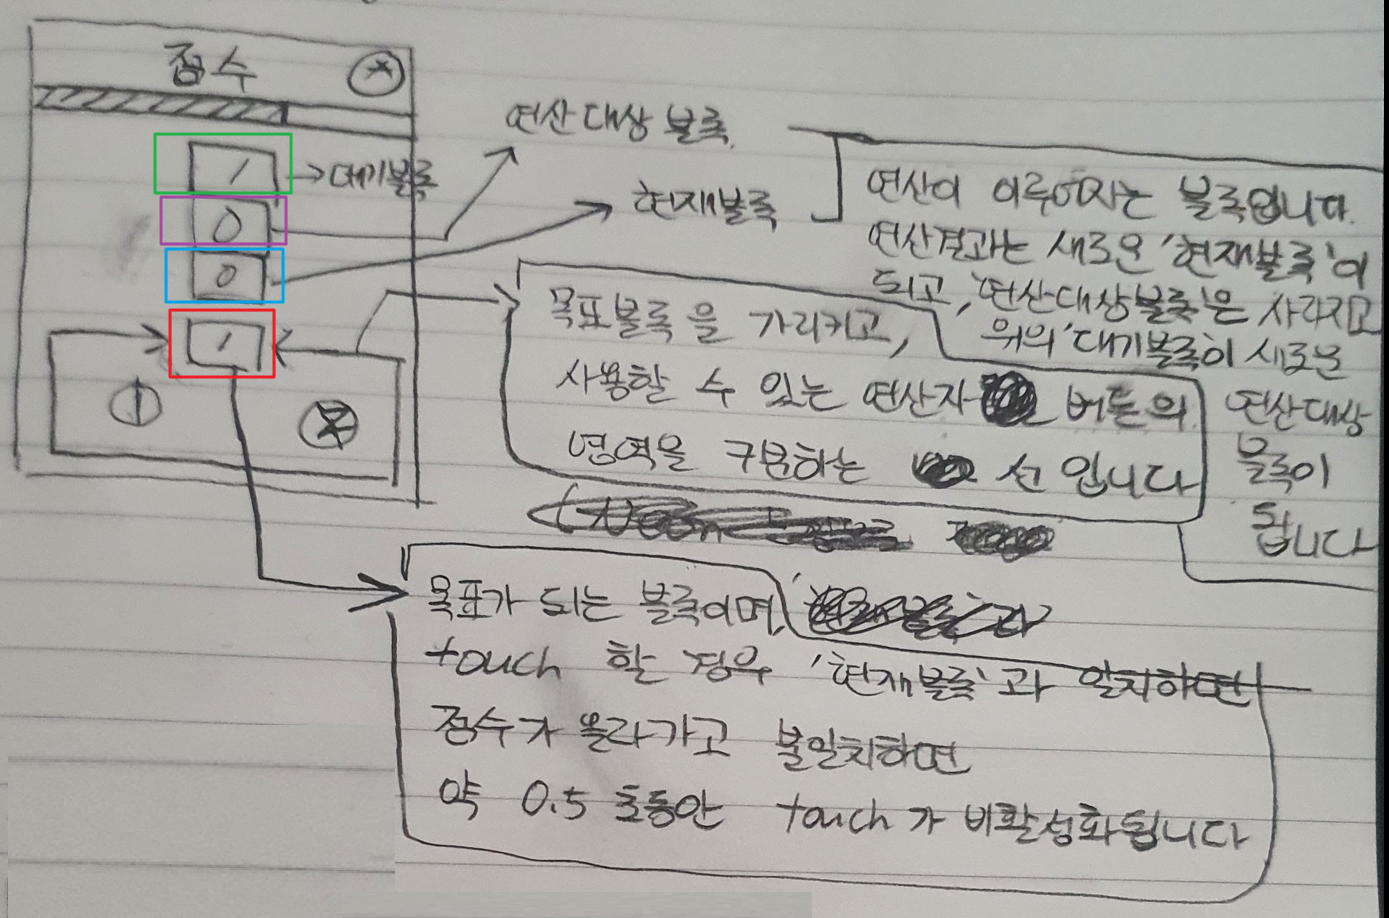 점수
1
→ 대기블록
0
0
1
연산 대상 블록
현재블록
연산이 이루어지는 블록입니다.
연산결과는 새로운 '현재블록'이
되고, '연산대상블록'은 사라지고
위의 '대기블록'이 새로운
연산대상
블록이
됩니다
목표블록을 가리키고,
사용할 수 있는 연산자 버튼의
영역을 구분하는 선 입니다
목표가 되는 블록이며,
touch 할 경우 '현재블록'과 일치하면
점수가 올라가고 불일치하면
약 0.5 초동안 touch가 비활성화됩니다